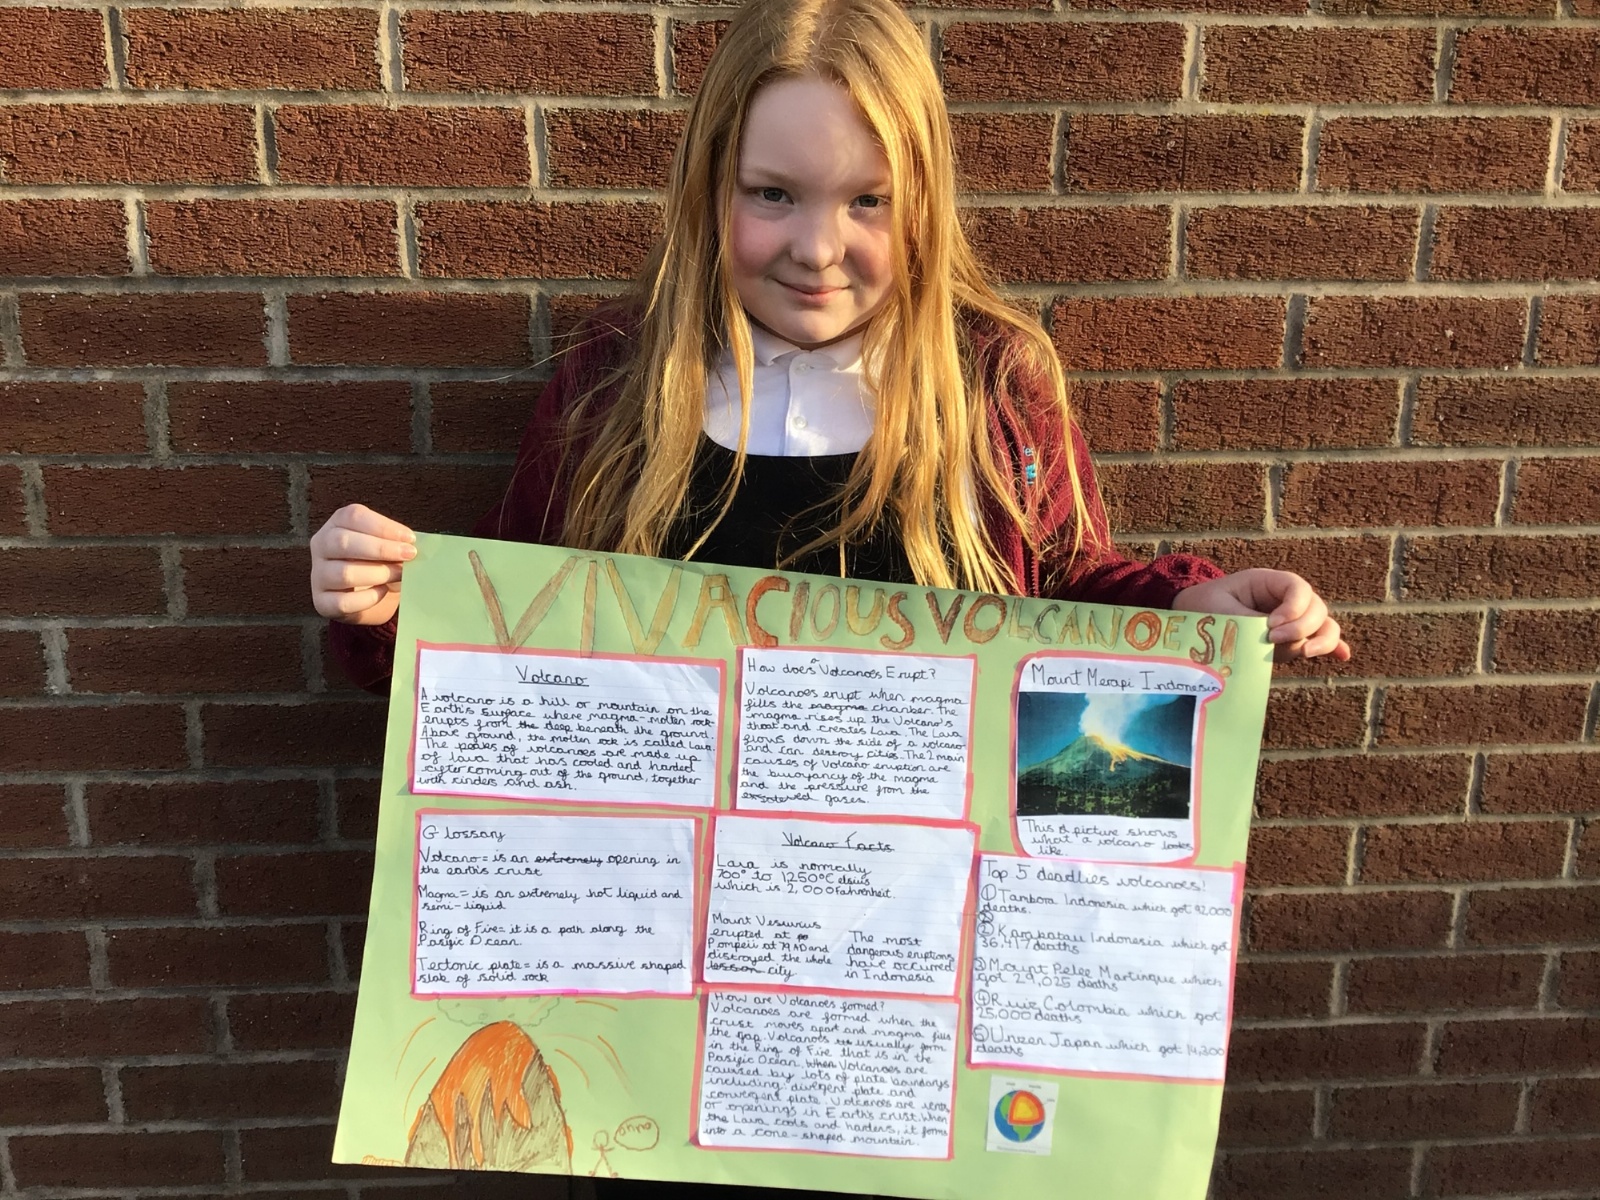 VIVACIOUS VOLCANOES!
Volcano
A volcano is a hill or mountain on the
Earth's surface where magma-molten rock-
erupts from the deep beneath the ground.
Above ground, the molten rock is called Lava.
The peaks of volcanoes are made up
of lava that has cooled and harded
after coming out of the ground, together
with cinders and ash.
How does a Volcanoes Erupt?
Volcanoes erupt when magma
fills the magma chamber. The
magma rises up the Volcano's
thoat and creates Lava. The Lava
flows down the side of a volcano
and can destroy cities. The 2 main
causes of volcano eruption are
the buoyancy of the magma
and the pressure from the
gases.
Mount Merapi Indonesia
This picture shows
what a volcano looks
like.
Glossary
Volcano = is an extremely opening in
the earth's crust
Magma = is an extremely hot liquid and
semi-liquid
Ring of Fire = it is a path along the
Pasific Ocean.
Tectonic plate = is a massive shaped
slab of solid rock
Volcano Facts
Lava is normally
700° to 1250°Celsius
which is 2,000 Fahrenheit.
Mount Vesuvius
erupted at
Pompeii at 79AD and
distroyed the whole
city
The most
dangerous eruptions
have occurred
in Indonesia
Top 5 deadlies volcanoes!
① Tambora Indonesia which got 92,000
deaths.
②
② Karakatau Indonesia which got
36,417 deaths
③ Mount Pelee Martinque which
got 29,025 deaths
④ Ruiz Colombia which got
25,000 deaths
⑤ Unzen Japan which got 14,300
deaths
How are Volcanoes formed?
Volcanoes are formed when the
crust moves apart and magma fills
the gap. Volcanoes usually form
in the Ring of Fire that is in the
Pasific Ocean. When Volcanoes are
caused by lots of plate boundarys
including: divergent plate and
convergent plate. Volcanoes are vents
or openings in Earth's crust. When
the Lava cools and hardens, it forms
into a cone-shaped mountain.